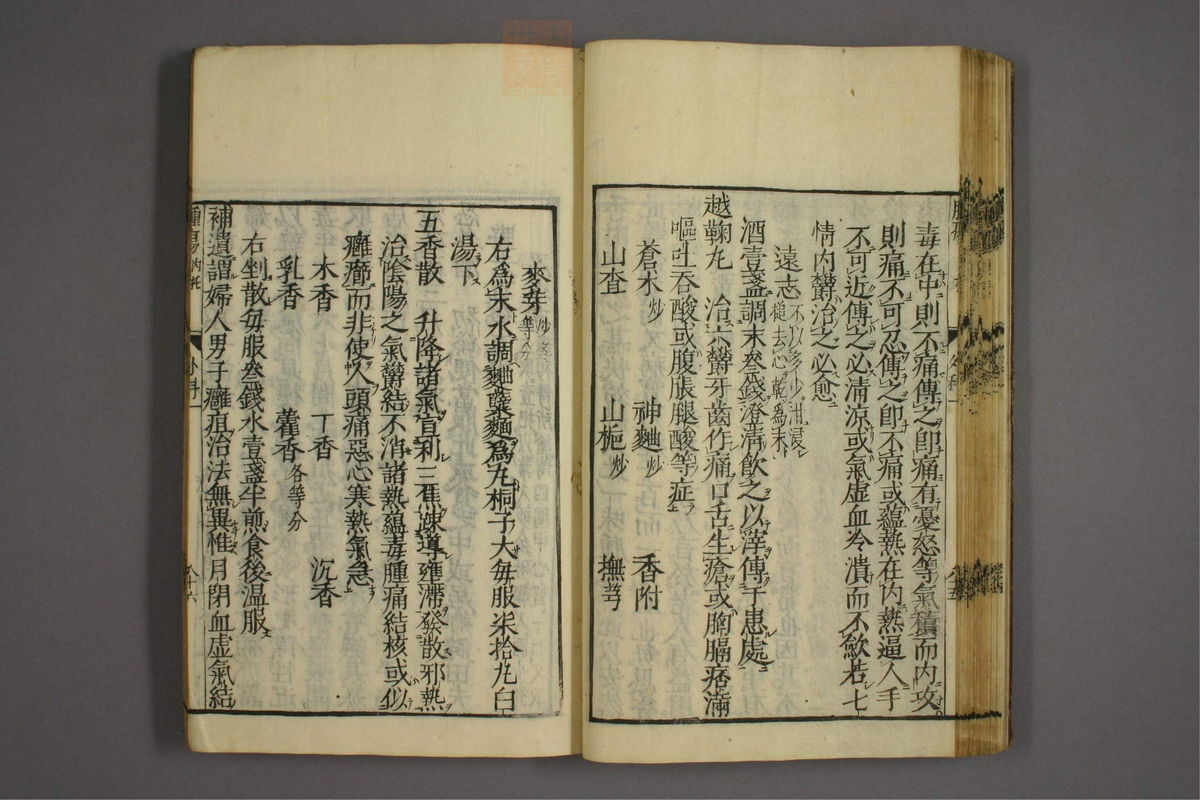 毒在中則不痛傳之即痛有憂怒等氣積而内攻
則痛不可忍傳之即不痛或蘊熱在内熱逼人手
不可近傳之必清涼或氣虚血冷潰而不歛若七
情内欝治之必愈
遠志 不以多少泔浸 槌去心乾爲末
酒壹盞調末叁錢澄清飲之以滓傳于患處
越鞠丸 治六欝牙齒作痛口舌生瘡或胸膈痞滿
嘔吐吞酸或腹脹腿酸等症
蒼木炒 神麯炒 香附
山査 山梔炒 撫芎
麥芽 炒各等分
右爲末水調麯蘖麵爲丸桐子大毎服柒拾丸白
湯下
五香散 升降諸氣宣利三焦踈導壅滯發散邪熱
治陰陽之氣欝結不消諸熱蘊毒腫痛結核或似
癰癤而非使人頭痛惡心寒熱氣急
木香 丁香 沉香
乳香 藿香各等分
右剉散毎服叁錢水壹盞半煎食後温服
補遺謂婦人男子癰疽治法無異惟月閉血虚氣結
外科一